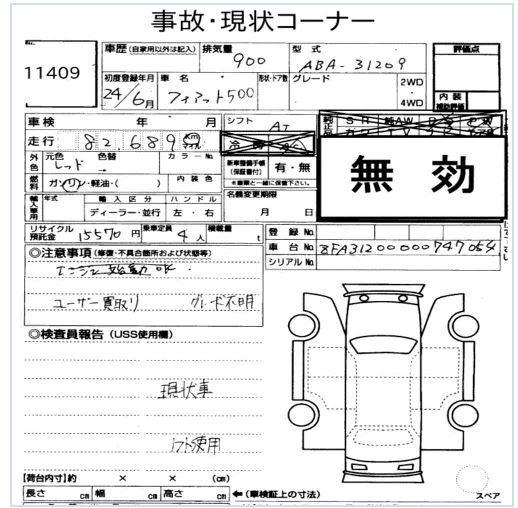 事故・現状コーナー
11409
車歴(自家用以外は記入) 排気量 900 型式 ABA-31209
評価点
初度登録年月 24/6月 車名 フィアット500 形状・ドア数 グレード 2WD 4WD
内装 補助評価
車検 年 月 シフト AT
走行 82,689 Km マイル 冷房
外色 元色 レッド 色替 → カラーNo. 新車整備手帳(保証書付) 有・無
燃料 ガソリン・軽油・( ) 内装色 ※書類と一緒に保管下さい。
無効
輸入車用 年式 輸入区分 ディーラー・並行 ハンドル 左・右 名義変更期限 月 日
リサイクル預託金 15570円 乗車定員 4人 積載量 t 登録No.
車台No. ZFA31200000747054
シリアルNo.
◎注意事項(修復・不具合箇所および状態等)
エンジン始動OK.
ユーザー買取り グレード不明
◎検査員報告(USS使用欄)
現状車
リフト使用
【荷台内寸】約 × × (cm)
長さ cm 幅 cm 高さ cm ←(車検証上の寸法)
スペア